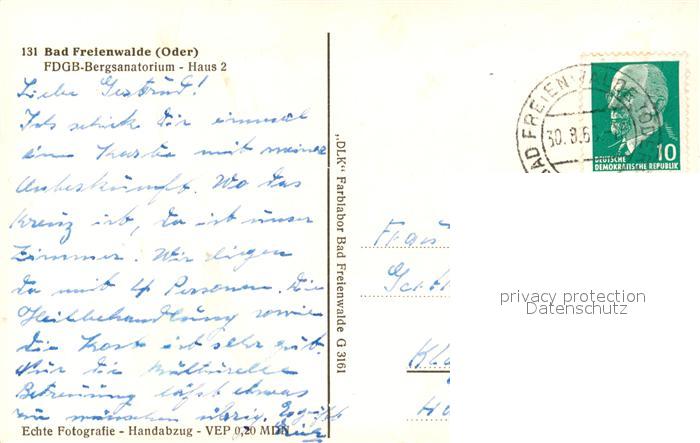 131 Bad Freienwalde (Oder)
FDGB-Bergsanatorium - Haus 2
Liebe Gertrud!
Ich schick Dir einmal
eine Karte mit meiner
Unterkunft. Wo das
Kreuz ist, da ist unser
Zimmer. Wir liegen
da mit 4 Personen. Die
Heilbehandlung sowie
die Kost ist sehr gut.
Nur die kulturelle
Betreuung läßt etwas
zu wünschen übrig. Es grüßt
Echte Fotografie - Handabzug - VEP 0,20 MDN
"DLK" Farblabor Bad Freienwalde G 3161
BAD FREIENWALDE (ODER)
30.8.6
10
DEUTSCHE
DEMOKRATISCHE REPUBLIK
Frau
privacy protection
Datenschutz